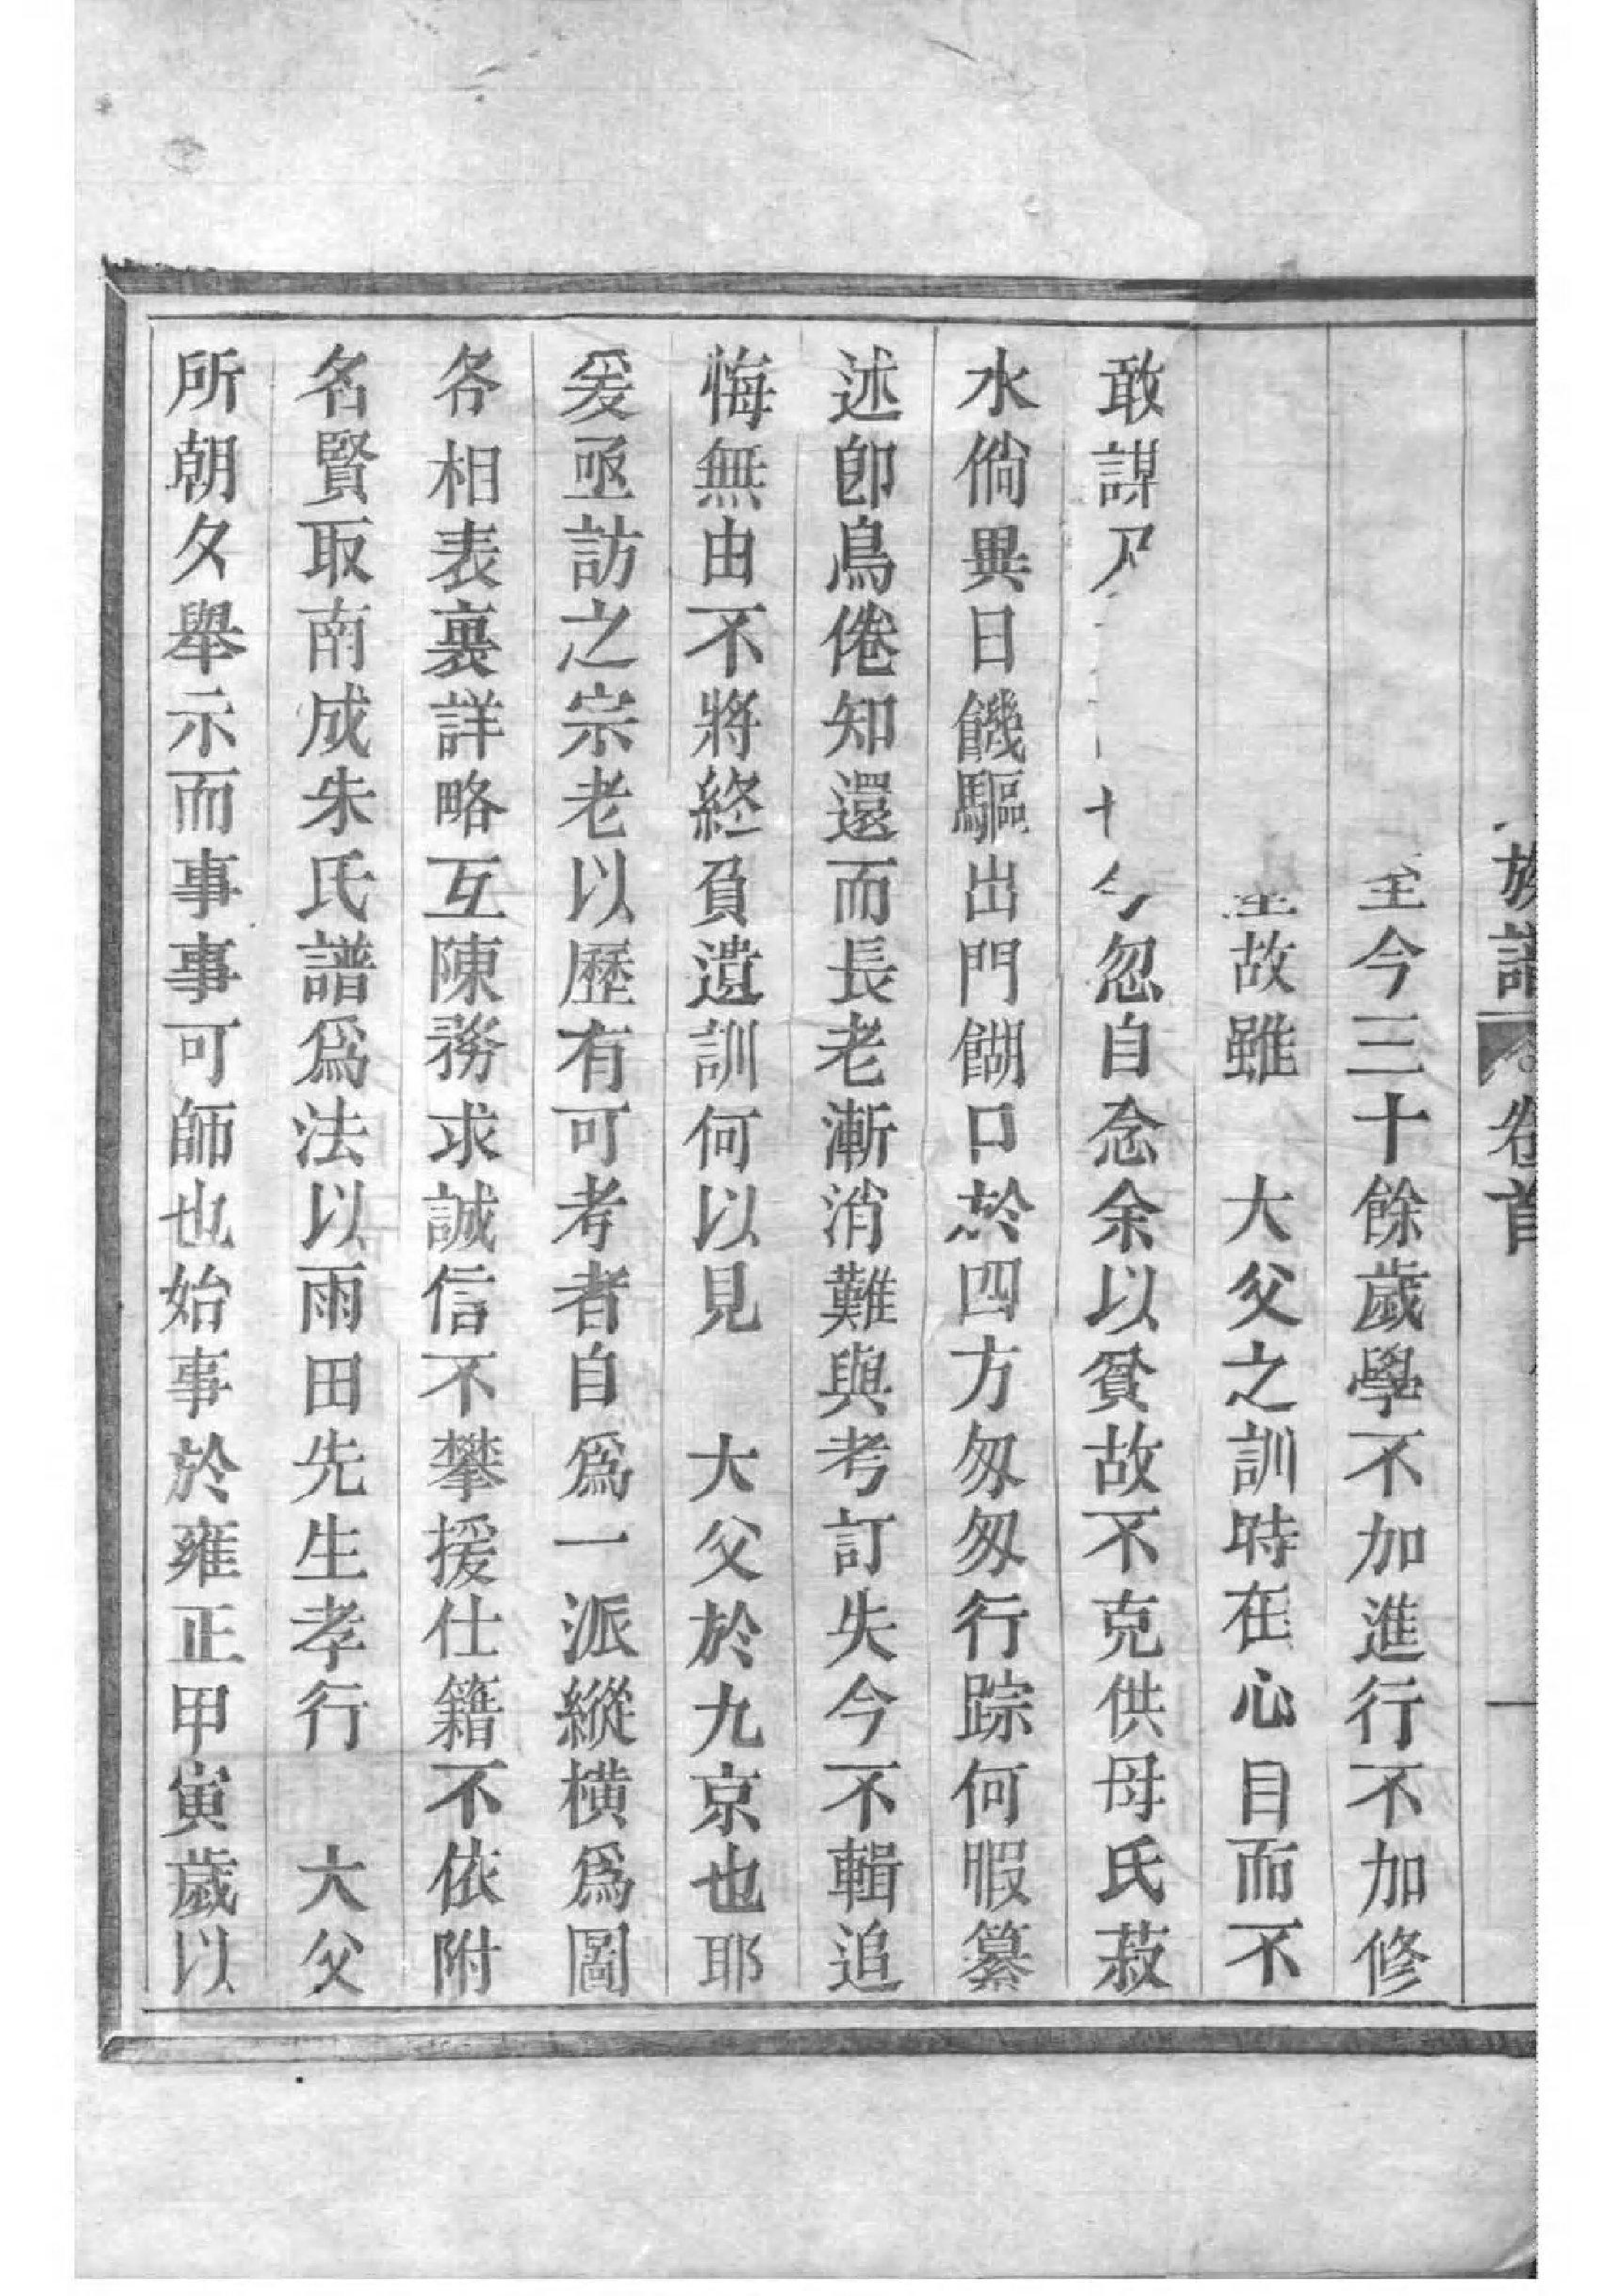 族譜 卷首 一
至今三十餘歲學不加進行不加修
故雖 大父之訓時在心目而不
敢謀 忽自念余以貧故不克供母氏菽
水倘異日饑驅出門餬口於四方匆匆行踪何暇纂
述卽鳥倦知還而長老漸消難與考訂失今不輯追
悔無由不將終負遺訓何以見 大父於九京也耶
爰亟訪之宗老以歷有可考者自爲一派縱橫爲圖
各相表裏詳略互陳務求誠信不攀援仕籍不依附
名賢取南成朱氏譜爲法以雨田先生孝行 大父
所朝夕舉示而事事可師也始事於雍正甲寅歲以